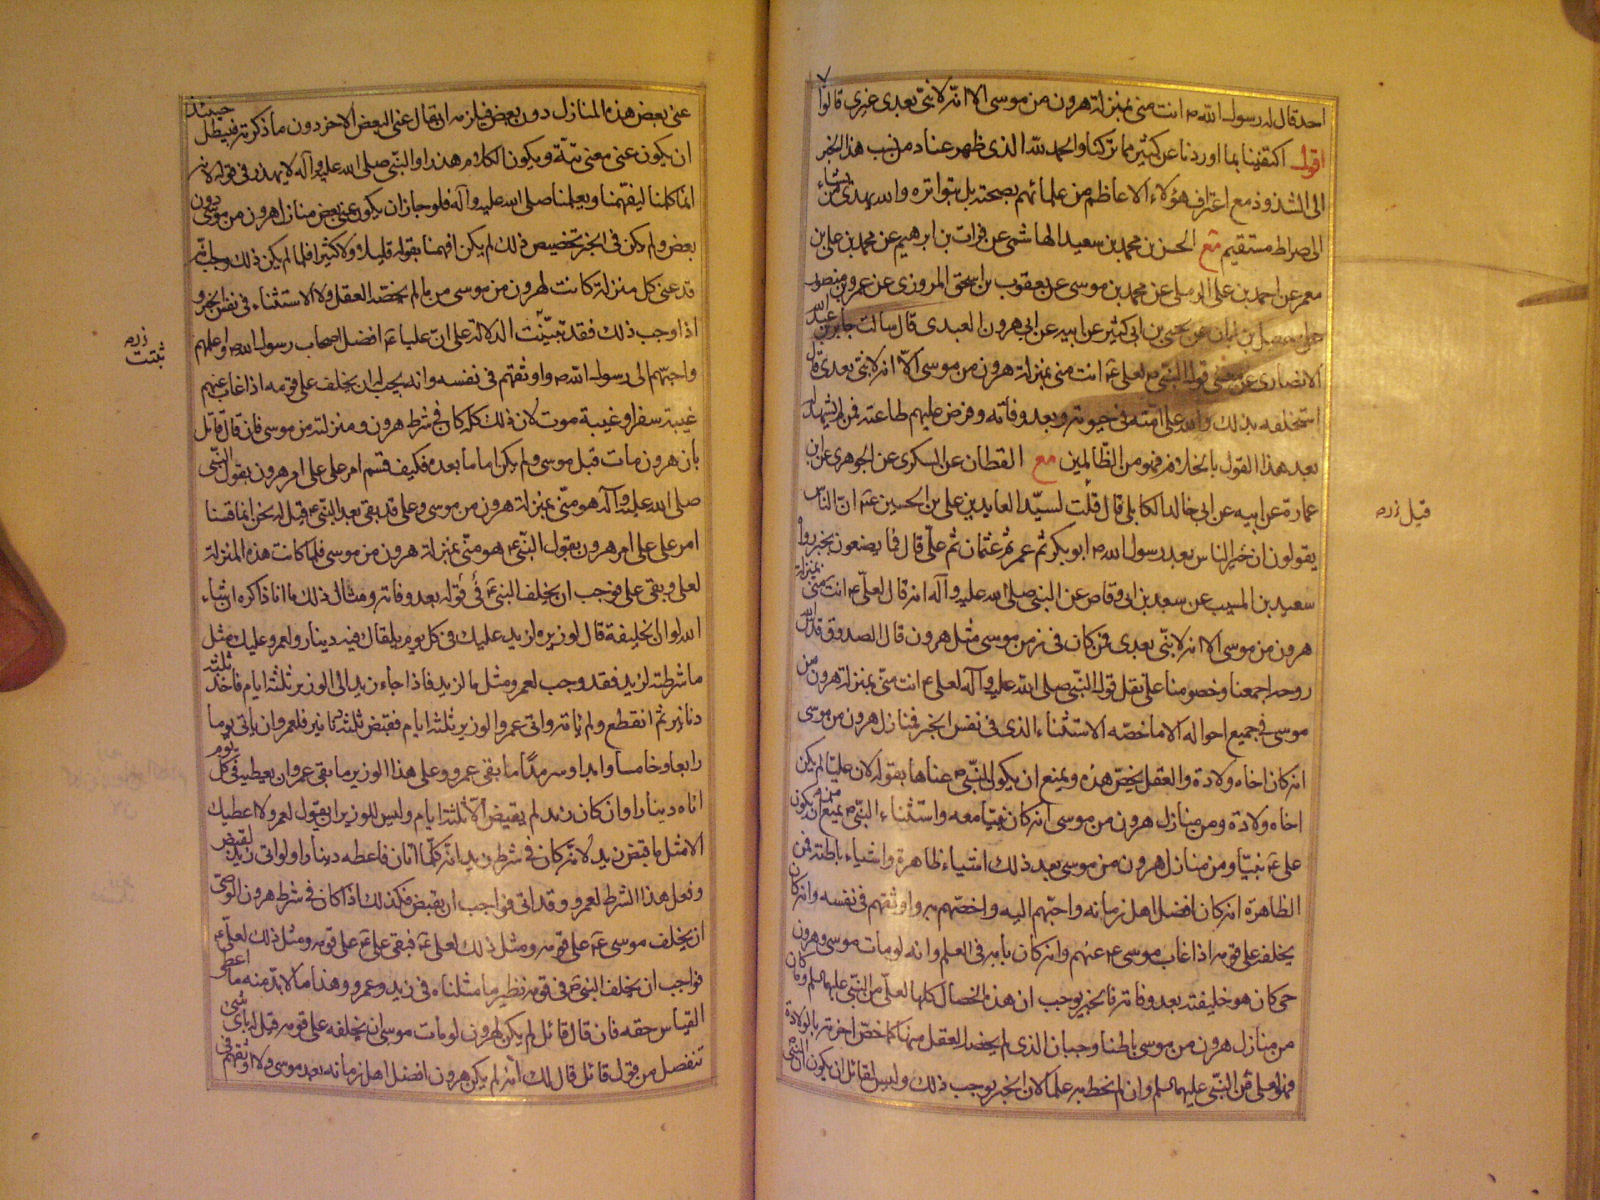 احد قال له رسول الله ص انت مني بمنزلة هرون من موسى الا انه لا نبي بعدي غيري قالوا لا
اقول اكتفينا بما اوردنا عن كثير ما تركنا والحمد لله الذي ظهر عناد من نسب هذا الخبر
الى الشذوذ مع اعتراف هؤلاء الاعاظم من علمائهم بصحته بل بتواتره والله يهدي من يشاء
الى صراط مستقيم مع الحسن بن محمد بن سعيد الهاشمي عن فرات بن ابرهيم عن محمد بن علي بن
معمر عن احمد بن علي الرملي عن محمد بن موسى عن يعقوب بن اسحق المروزي عن عمرو بن منصور
عن يحيى بن ابي كثير عن ابيه عن ابي هرون العبدي قال سالت جابر بن عبد الله
الانصاري عن معنى قول النبي ص لعلي ع انت مني بمنزلة هرون من موسى الا انه لا نبي بعدي قال
استخلفه بذلك والله على امته في حيوته وبعد وفاته وفرض عليهم طاعته فمن لم يشهد له
بعد هذا القول بالخلافة فهو من الظالمين مع القطان عن السكري عن الجوهري عن ابن
عمارة عن ابيه عن ابي خالد الكابلي قال قلت لسيد العابدين علي بن الحسين ع ان الناس
يقولون ان خير الناس بعد رسول الله ص ابو بكر ثم عمر ثم عثمان ثم علي قال فما يصنعون بخبر رواه
سعيد بن المسيب عن سعد بن ابي وقاص عن النبي صلى الله عليه وآله انه قال لعلي ع انت مني بمنزلة
هرون من موسى الا انه لا نبي بعدي فمن كان في زمن موسى مثل هرون قال الصدوق قدس الله
روحه اجمعنا وخصومنا على نقل قول النبي صلى الله عليه وآله لعلي ع انت مني بمنزلة هرون من
موسى في جميع احواله الا ما خصه الاستثناء الذي في نفس الخبر فمنازل هرون من موسى
انه كان اخاه ولادة والعقل يخص هذه ويمنع ان يكون النبي ص عناها بقوله لان عليا لم يكن
اخاه ولادة ومن منازل هرون من موسى انه كان نبيا معه واستثناء النبي ص يمنع من ان يكون
علي ع نبيا ومن منازل هرون من موسى بعد ذلك اشياء ظاهرة واشياء باطنة فمن
الظاهرة انه كان افضل اهل زمانه واحبهم اليه واخصهم به واوثقهم في نفسه وانه كان
يخلفه على قومه اذا غاب موسى ع عنهم وانه كان بابه في العلم وانه لو مات موسى وهرون
حي كان هو خليفته بعد وفاته فالخبر يوجب ان هذه الخصال كلها لعلي من النبي عليهما السلم وما كان
من منازل هرون من موسى باطنا وجب ان الذي لم يخصه العقل منها كما خص اخوته بالولادة
فهو لعلي من النبي عليهما السلم وان لم نحط به علما لان الخبر يوجب ذلك وليس لقائل ان يكون النبي ص
قيل ن ره
عنى بعض هذه المنازل دون بعض فيلزمه ان يقال عنى البعض الاخر دون ما ذكرته فيبطل حينئذ
ان يكون عنى معنى بتة ويكون الكلام هذرا والنبي صلى الله عليه وآله لا يهذر في قوله لانه
انما كلمنا ليفهمنا ويعلمنا صلى الله عليه وآله فلو جاز ان يكون عنى بعض منازل هرون من موسى دون
بعض ولم يكن في الخبر تخصيص ذلك لم يكن افهمنا بقوله قليلا ولا كثيرا فلما لم يكن ذلك وجب انه
قد عنى كل منزلة كانت لهرون من موسى مما لم يخصه العقل ولا الاستثناء في نفس الخبر و
اذا وجب ذلك فقد تبينت الدلالة على ان عليا ع افضل اصحاب رسول الله ص واعلمهم
واحبهم الى رسول الله ص واوثقهم في نفسه وانه يجب له ان يخلفه على قومه اذا غاب عنهم
غيبة سفر او غيبة موت لان ذلك كله كان في شرط هرون ومنزلته من موسى فان قال قائل
بان هرون مات قبل موسى ولم يكن اماما بعده فكيف قستم امر علي على امر هرون بقول النبي
صلى الله عليه وآله هو مني بمنزلة هرون من موسى وعلي قد بقي بعد النبي ص قيل له نحن انما قسنا
امر علي على امر هرون بقول النبي ص هو مني بمنزلة هرون من موسى فلما كانت هذه المنزلة
لعلي وبقي علي فوجب ان يخلف النبي ص في قومه بعد وفاته ومثال ذلك ما انا ذاكره ان شاء
الله لو ان الخليفة قال لوزيره لزيد عليك في كل يوم يلقاك فيه دينار ولعمرو عليك مثل
ما شرطته لزيد فقد وجب لعمرو مثل ما لزيد فاذا جاء زيد الى الوزير ثلثة ايام فاخذ ثلثة
دنانير ثم انقطع ولم ياته واتى عمرو الوزير ثلثة ايام فقبض ثلثة دنانير فلعمرو ان ياتي يوما
رابعا وخامسا وابدا وسرمدا ما بقي عمرو وعلى هذا الوزير ما بقي عمرو ان يعطيه في كل يوم
اتاه دينارا وان كان زيد لم يقبض الا ثلثة ايام وليس للوزير ان يقول لعمرو لا اعطيك
الا مثل ما قبض زيد لانه كان في شرط زيد انه كلما اتاك فاعطه دينارا ولو اتى زيد لقبض
وفعل هذا الشرط لعمرو وقد اتى فواجب ان يقبض فكذلك اذا كان في شرط هرون الوصي
ان يخلف موسى ع على قومه ومثل ذلك لعلي ع فبقي علي ع على قومه ومثل ذلك لعلي ع
فواجب ان يخلف النبي ص في قومه نظير ما مثلناه في زيد وعمرو وهذا ما لا بد منه ما اعطى
القياس حقه فان قال قائل لم يكن لهرون لو مات موسى ان يخلفه على قومه قيل له باي شيء
تنفصل من قول قائل قال لك انه لم يكن هرون افضل اهل زمانه بعد موسى ولا اوثقهم في
ثبتت ن ره